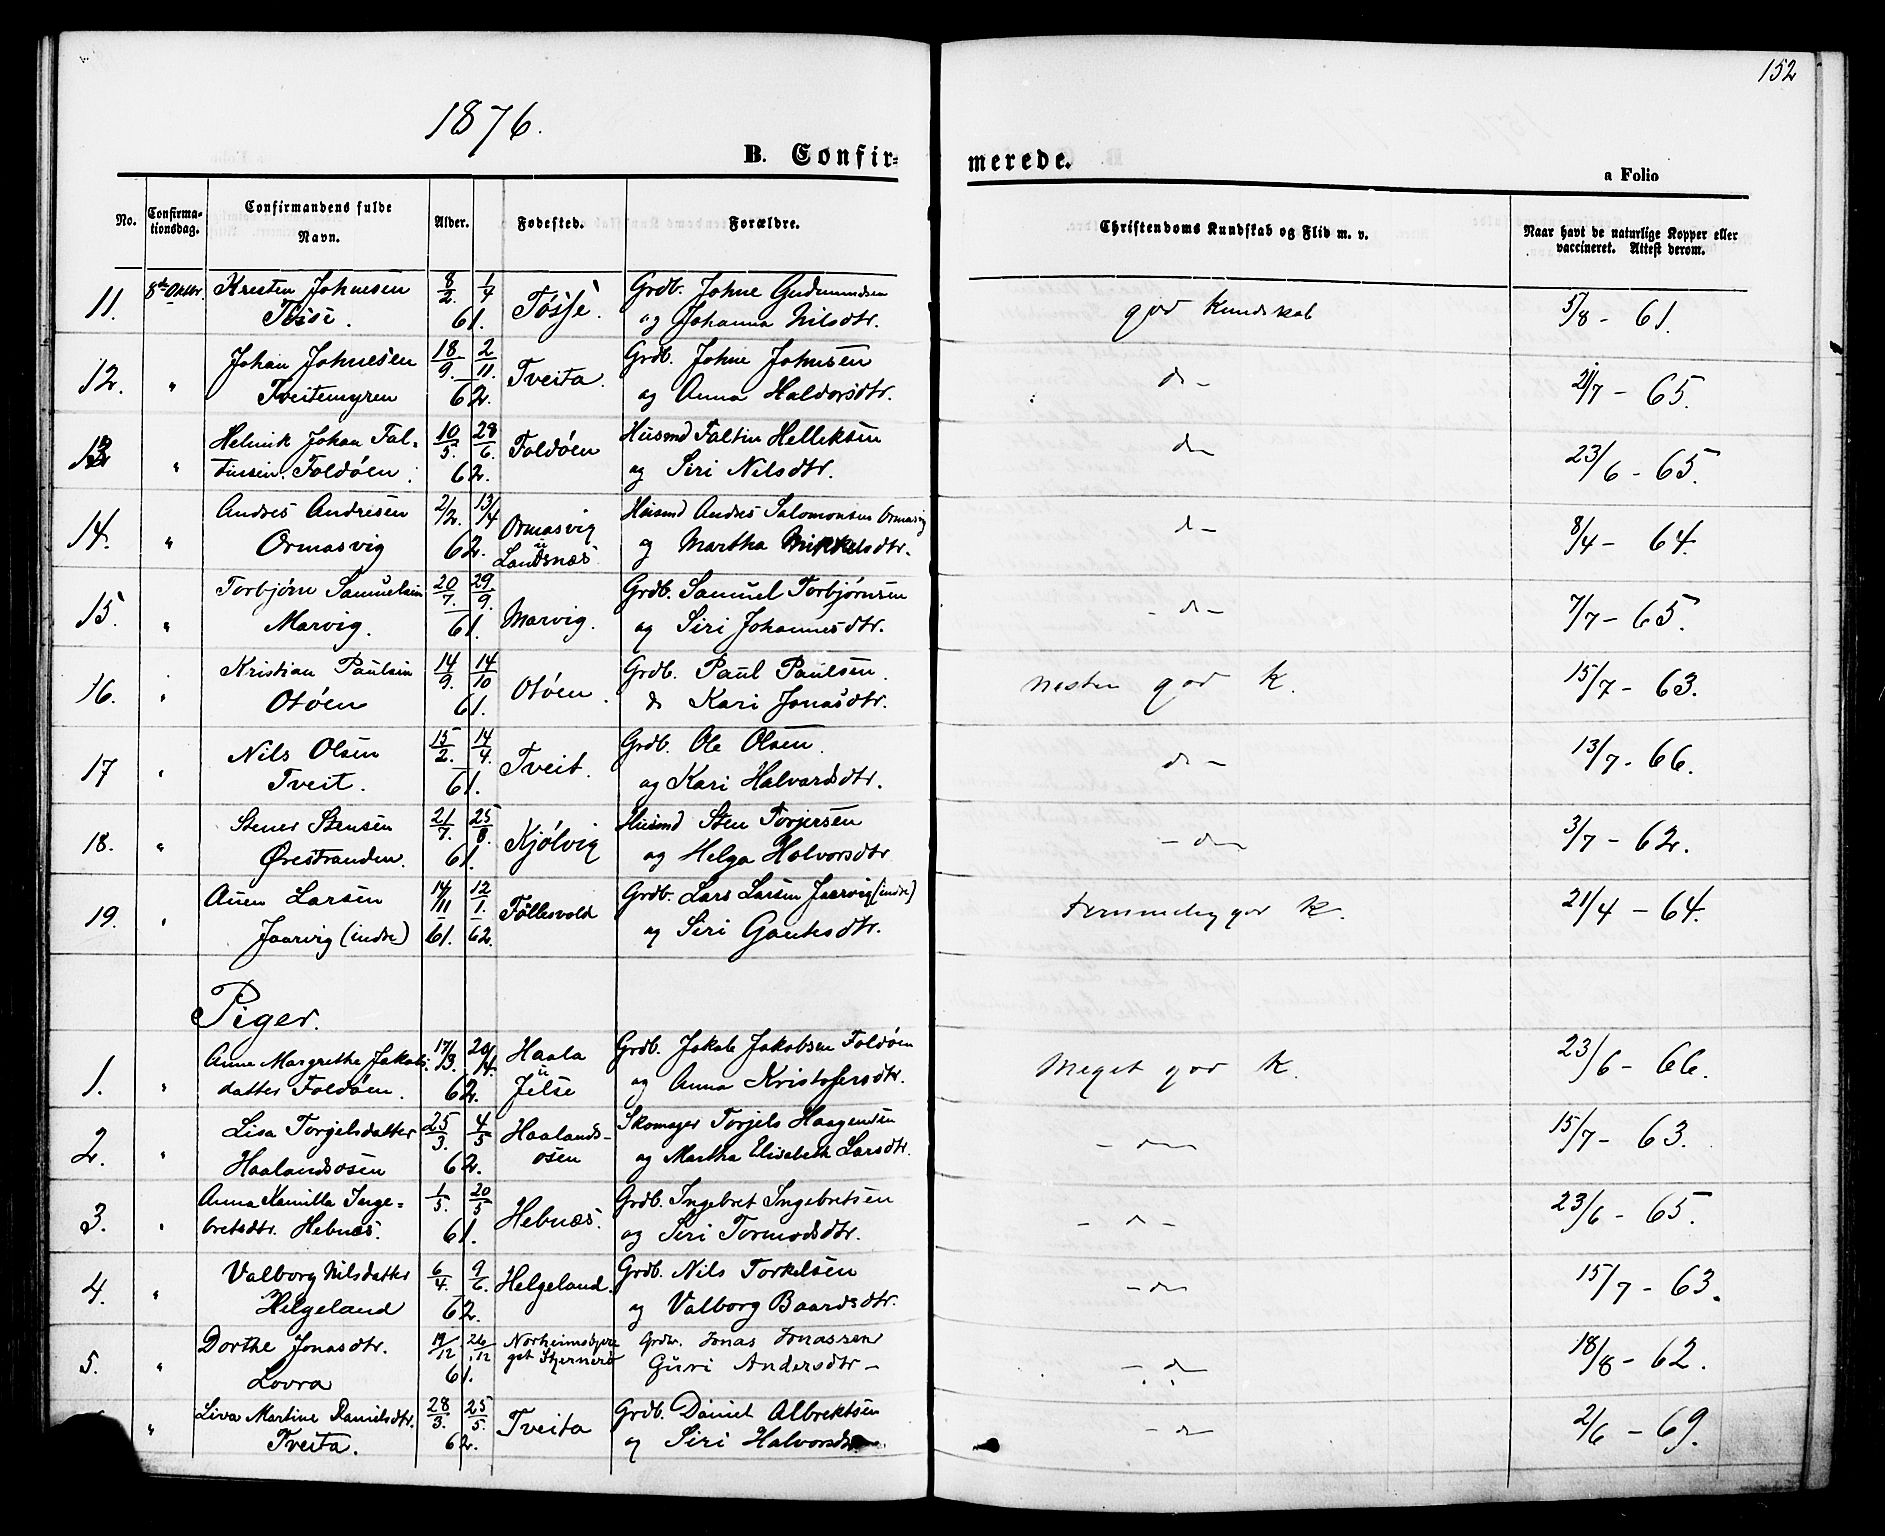 152
1876.
B. Confirmerede.
a Folio
No. Confirmationsdag. Confirmandens fulde Navn. Alder. Fødested. Forældre. Christendoms Kundskab og Flid m. v. Naar havt de naturlige Kopper eller vaccineret. Attest derom.
11. 8de Oktbr. Kresten Johnesen 8/2. 1/4 Tøsse. Grdb. Johne Gudmundsen god Kundskab 5/8 - 61.
Tøsse. 61. og Johanna Nilsdtr.
12. " Johan Johnesen 18/9. 2/11. Tveita. Grdb. Johne Johnsen do 21/7 - 65.
Tveitemyren 62. og Anna Haldorsdtr.
13 " Helmik Johan Fal- 10/5. 28/6. Foldøen Husmd Faltin Helleksen do 23/6 - 65.
tinsen Foldøen. 62. og Siri Nilsdtr.
14. " Andres Andresen 2/2. 13/4 Ormasvig Husmd Andres Salomonsen Ormasvig do 8/4 - 64.
Ormasvig 62. u Landsnæs og Martha Mikkelsdtr.
15. " Torbjørn Samuelsen 20/7. 29/9. Marvig. Grdb. Samuel Torbjørnsen do 7/7 - 65.
Marvig. 61. og Siri Johannesdtr.
16. " Kristian Paulsen 14/9. 14/10 Otøen. Grdb. Paul Paulsen. Næsten god K. 15/7 - 63.
Otøen 61. & Kari Jonasdtr.
17 " Nils Olsen 15/2. 14/4. Tveit. Grdb. Ole Olsen. do 13/7 - 66.
Tveit. 61. og Kari Halvardsdtr.
18. " Stener Stensen 21/7. 25/8. Kjølvig Husmd Sten Torjersen do 3/7 - 62.
Ørestranden. 61. og Helga Halvorsdtr
19. " Auen Larsen 14/11 12/1. Føllesvold Grdb. Lars Larsen Jaarvig (indre) Temmelig god K. 21/4 - 64.
Jaarvig (indre) 61. 62. og Siri Gautesdtr.
Piger.
1. " Anne Margrethe Jakobs- 17/3. 20/4. Haala Grdb. Jakob Jakobsen Foldøen Meget god K. 23/6 - 66.
datter Foldøen. 62. u Jelse og Anna Kristofersdtr.
2. " Lisa Torgelsdatter 25/3. 4/5 Haalands- Skomager Torjels Haagensen do 15/7 - 63.
Haalandsosen 62. osen og Martha Elisebeth Larsdtr.
3. " Anna Kamilla Inge- 1/5. 20/5 Hebnæs. Grdb. Ingebret Ingebretsen do 23/6 - 65.
bretsdtr. Hebnæs. 61. og Siri Tormodsdtr.
4. " Valborg Nilsdatter 6/4 9/6. Helgeland. Grdb. Nils Torkelsen do 15/7 - 63.
Helgeland 62. og Valborg Baardsdtr.
5. " Dorthe Jonasdtr. 19/12 26/12 Grdbr. Jonas Jonassen do 18/8 - 62.
Lovra 61. Guri Andersdtr -
" Liva Martine Danielsdtr. 28/3. 25/5. Tveita Grdb. Daniel Albrektsen do 2/6 - 69.
Tveita. 62. og Siri Halvorsdtr.